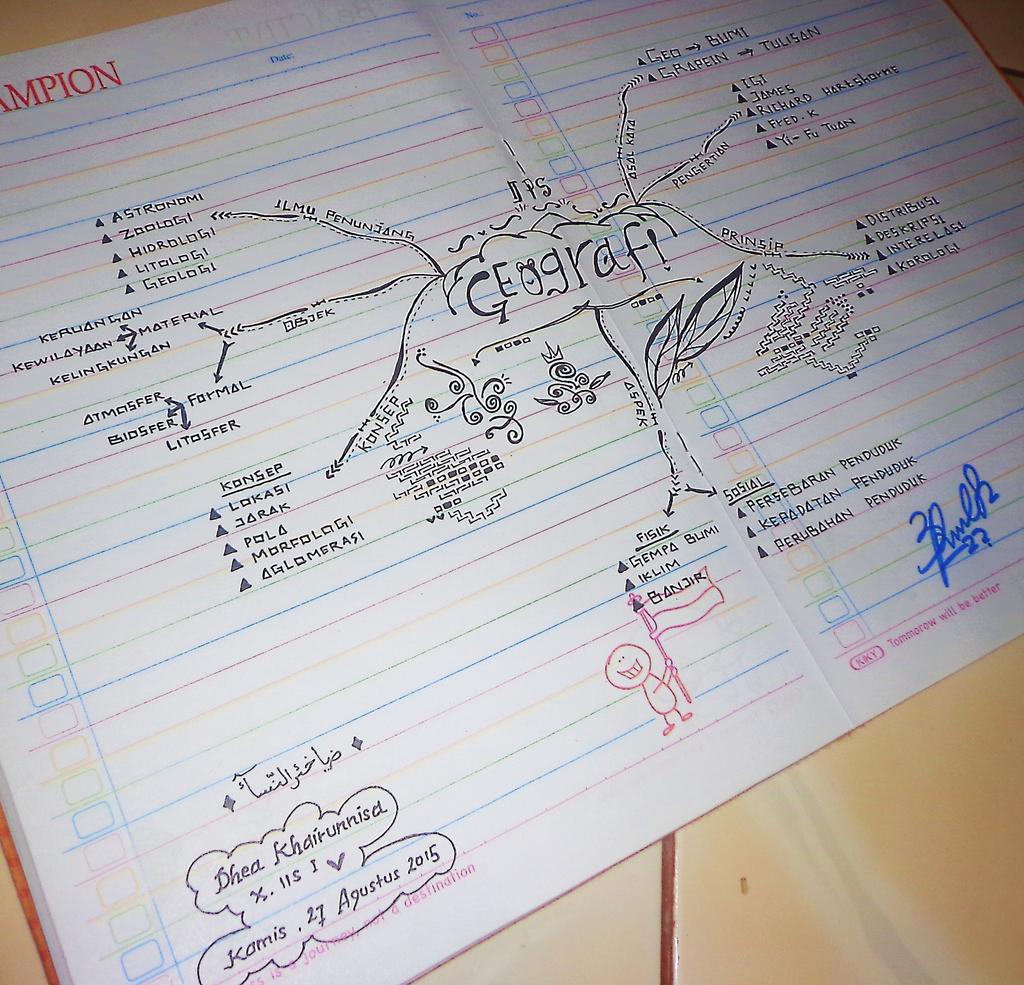 AMPION
Date:
No.:
IPS
GEOGRAFI
ASAL KATA
GEO → BUMI
GRAPEIN → TULISAN
PENGERTIAN
IGI
JAMES
RICHARD HARTSHORNE
FRED.K
YI-FU TUAN
PRINSIP
DISTRIBUSI
DESKRIPSI
INTERELASI
KOROLOGI
ILMU PENUNJANG
ASTRONOMI
ZOOLOGI
HIDROLOGI
LITOLOGI
GEOLOGI
OBJEK
MATERIAL
KERUANGAN
KEWILAYAAN
KELINGKUNGAN
FORMAL
ATMOSFER
BIOSFER
LITOSFER
KONSEP
KONSEP
LOKASI
JARAK
POLA
MORFOLOGI
AGLOMERASI
ASPEK
FISIK
GEMPA BUMI
IKLIM
BANJIR
SOSIAL
PERSEBARAN PENDUDUK
KEPADATAN PENDUDUK
PERUBAHAN PENDUDUK
27
KKY Tommorow will be better
ضياخئرالنّسآء
Dhea Khairunnisa
X. IIS I
Kamis, 27 Agustus 2015
ss is a journey, not a destination